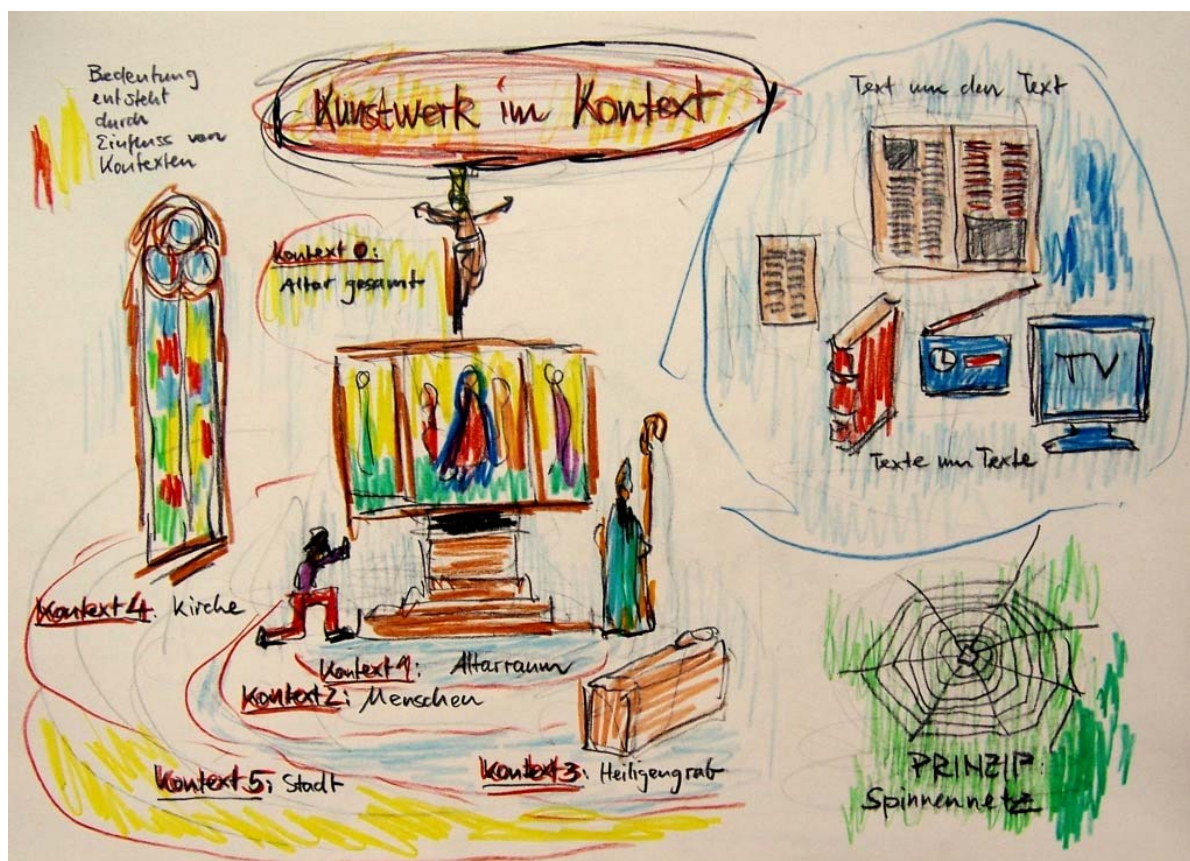 Bedeutung
entsteht
durch
Einfluss von
Kontexten
Kunstwerk im Kontext
Text um den Text
Kontext 0:
Altar gesamt
TV
Texte um Texte
Kontext 4: Kirche
Kontext 1: Altarraum
Kontext 2: Menschen
Kontext 3: Heiligengrab
Kontext 5: Stadt
PRINZIP:
Spinnennetz